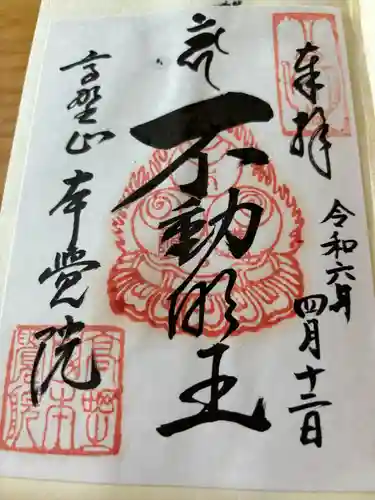 奉拝
令和六年
四月十二日
不動明王
高野山 本覺院